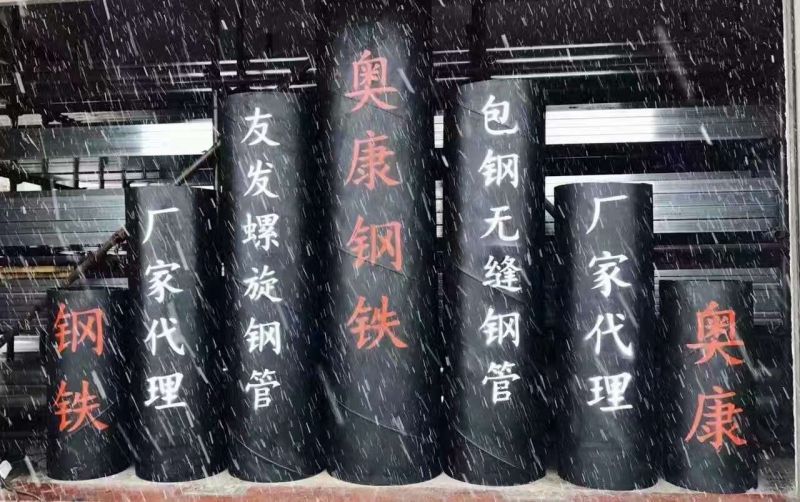 钢铁
厂家代理
友发螺旋钢管
奥康钢铁
包钢无缝钢管
厂家代理
奥康